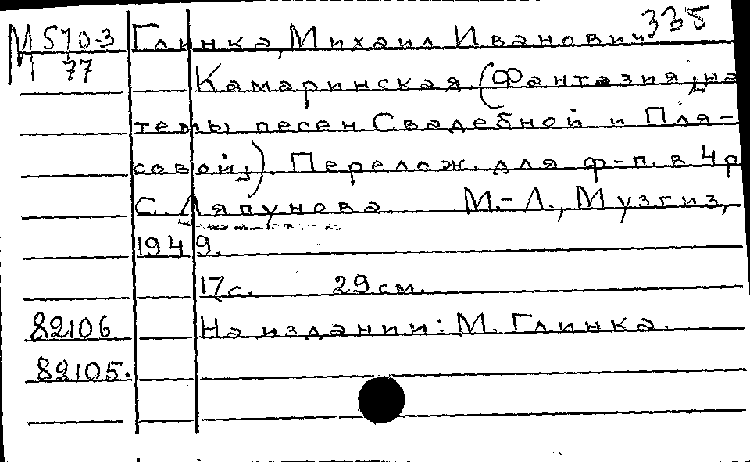 М 510-3 Глинка, Михаил Иванович 335
Г 77
Камаринская (Фантазия на
темы песен Свадебной и Пля-
совой). Перелож. для ф-п. в 4 р
С. Ляпунова М.-Л., Музгиз,
1949.
17 с. 29 см.
82106 На издании: М. Глинка.
82105.